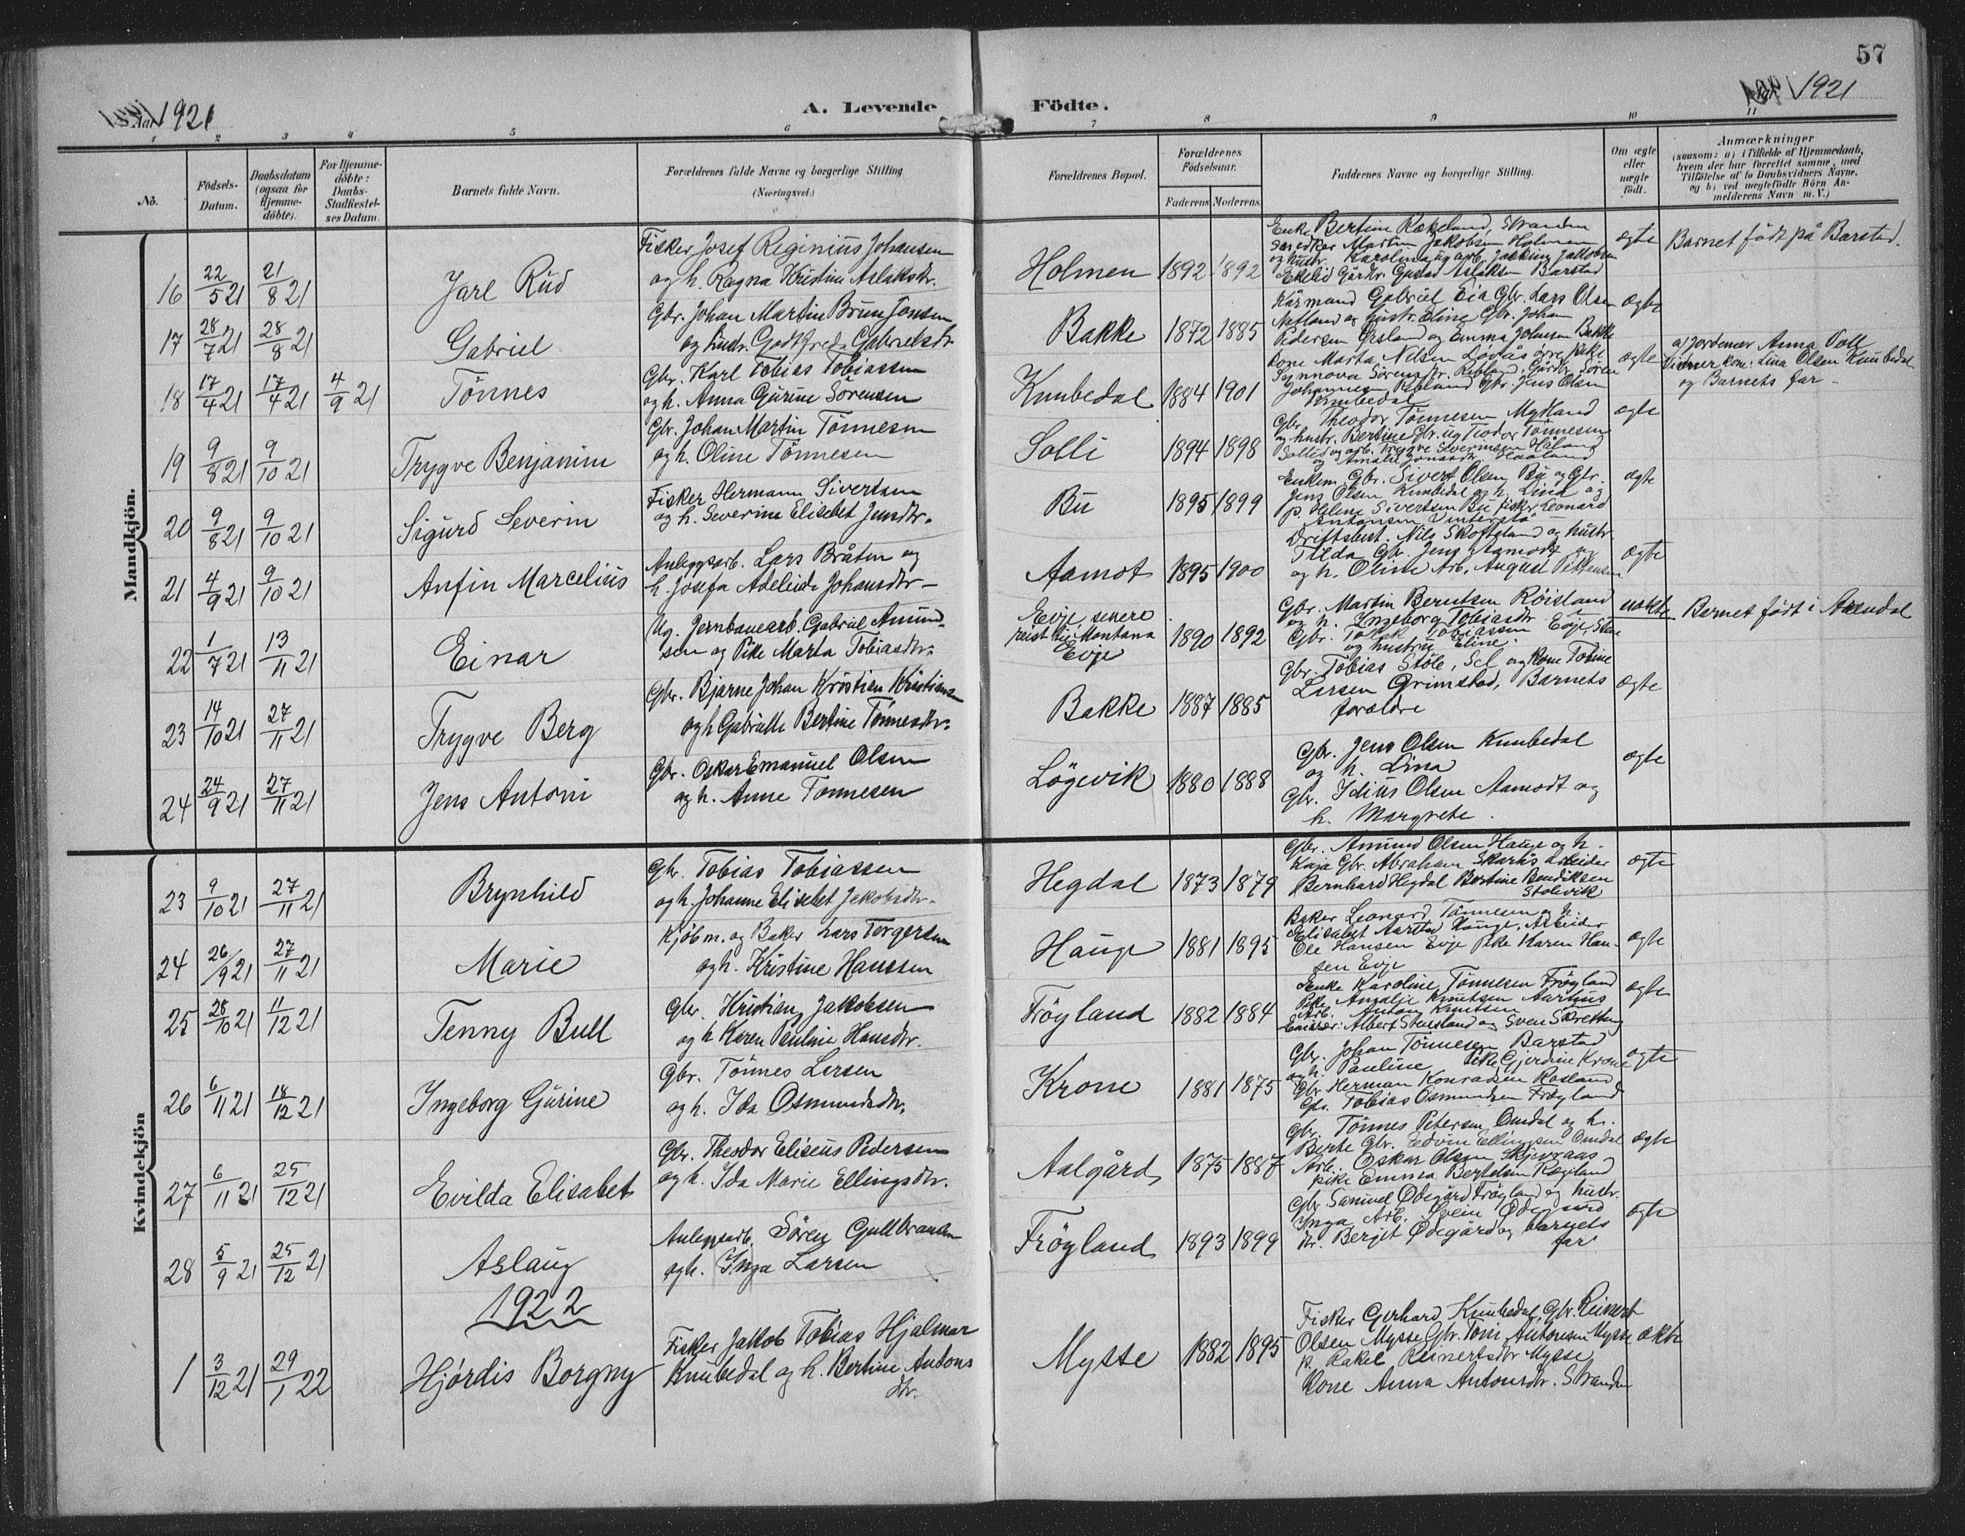 57
Aar 1921
A. Levende Födte.
Aar 1921
1 2 3 4 5 6 7 8 9 10 11
No.
Födsels-Datum.
Daabsdatum (ogsaa for Hjemme-döbte).
For Hjemme-döbte: Daabs-Stadfæstel-ses Datum.
Barnets fulde Navn.
Forældrenes fulde Navne og borgerlige Stilling (Næringsvei.)
Forældrenes Bopæl.
Forældrenes Födselsaar.
Faderens. Moderens.
Faddernes Navne og borgerlige Stilling.
Om ægte eller uægte födt.
Anmærkninger
(saasom: a) i Tilfælde af Hjemmedaab, hvem der har forrettet samme, med Tilföielse af to Daabsvidners Navne, og b) ved uægtefödte Börn An-melderens Navn m. V.)
Mandkjön.
16 22/5 21 21/8 21 Jarl Rud
Fisker Josef Reginius Johansen
og h. Ragna Kristine Aslaksdtr.
Holmen 1892 1892
Enke Bertine Rekeland, Stranden
Snedker Martin Jakobsen Holmen
og hustr. Karoline ug arb. Jakobsen
Ekelid Gårdbr. Gustav Aslaksen Barstad
ægte
Barnet födt på Barstad.
17 28/7 21 28/8 21 Gabriel
Gbr. Johan Martin Brun Jonsen
og hustr. Godtfreda Gabrielsdtr
Bakke 1872 1885
Kårmand Gabriel Eia Gbr. Lars Olsen
Netland og hustr. Eline Gbr. Johan
Pedersen Örsland og Emma Johnsen Bakke
ægte
18 17/4 21 17/4 21 4/9 21 Tönnes
Gbr. Karl Tobias Tobiassen
og h. Anna Gurine Sörensen
Knubedal 1884 1901
Kone Marta Nilsen Lövås
Johannesen Rebland Gbr. Jens Olsen
Knubedal
ægte
a) Jordemor Anna Voll
Vidner kone: Lina Olsen Knubedal
og Barnets far.
19 9/8 21 9/10 21 Trygve Benjamin
Gbr. Johan Martin Tönnesen
og h. Oline Tönnesen
Solli 1894 1898
Gbr. Theodor Tönnesen Mykland
og hustr. Bertine Gbr. ug Teodor Tönnesen
ægte
20 9/8 21 9/10 21 Sigurd Severin
Fisker Hermann Sivertsen
og h. Severine Elisebet Jensdtr.
Bu 1895 1899
Enkem. Gbr. Sivert Olsen Bu og Gbr.
Jens Olsen Knubedal og h. Lina og
p. Helene Sivertsen Bu fisker Leonard
Antonsen Vinterstö
ægte
21 4/9 21 9/10 21 Anfin Marcelius
Anleggsarb. Lars Bråten og
h. Josefa Adeleide Johansdtr
Aamot 1895 1900
Driftsbest. Nils Skofteland og hustr
Tilda Gbr. Jens Aamodt
og h. Oline Arb. August Pettersen
ægte
22 1/7 21 13/11 21 Einar
Ug. Jernbanearb. Gabriel Amund-
sen og Pike Marta Tobiasdtr.
Evje, senere
reist til Montana
Evje 1890 1892
Gbr. Martin Berntsen Röisland
og h. Ingeborg Tobiasdtr
Gbr. Tobiassen Evje
og hustru Eline
uekte
Barnet födt i Arendal
23 14/10 21 27/11 21 Trygve Berg
Gbr. Bjarne Johan Kristian Kristians
og h Gabrielle Bertine Tönnesdtr.
Bakke 1887 1885
Gbr. Tobias Störe, Sel og kone Tobine
Larsen Grimstad, Barnets
foreldre
ægte
24 24/9 21 27/11 21 Jens Antoni
Gbr. Oskar Emanuel Olsen
og h. Anne Tonnesen
Lögevik 1880 1888
Gbr. Jens Olsen Knubedal
og h. Lina
Gbr. Idius Olsen Aamodt og
h. Margrete.
ægte
Kvindekjön
23 9/10 21 27/11 21 Brynhild
Gbr. Tobias Tobiassen
og h. Johanne Elisebet Jakobsdtr.
Hegdal 1873 1879
Gbr. Amund Olsen Hauge og h.
Kaja Gbr. Abraham Skaris Arbeider
Bernhard Hegdal Bertine Bendiksen
Stölevik
ægte
24 26/9 21 27/11 21 Marie
Kjöbm. og Baker Lars Torgersen
og h. Kristine Hanssen
Hauge 1881 1895
Baker Leonard Tönnesen og h.
Elisabet Aarstad Hauge, Arbeider
Ole Hansen Evje pike Karen Han-
sen Evje
ægte
25 28/10 21 11/12 21 Tenny Bull
Gbr. Kristian Jakobsen
og h Karen Pauline Hansdtr.
Fröyland 1882 1884
Enke Karoline Tönnesen Fröyland
Pike Amalie Knutsen Aarhus
Arb. Anton Knutsen
Emissær: Albert Stuesland og Sven Skretting
ægte
26 6/11 21 18/12 21 Ingeborg Gurine
Gbr. Tönnes Larsen
og h. Ida Osmundsdtr.
Krone 1881 1875
Gbr. Johan Tönnesen Barstad
og h. Pauline Pike Gjerdine Krone
Gbr Herman Konradsen Rosland
Gbr. Tobias Osmundsen Fröyland
ægte
27 6/11 21 25/12 21 Evilda Elisabet
Gbr. Theodor Eliseus Pedersen
og h. Ida Marie Ellingsdtr.
Aalgård 1875 1887
Gbr. Tönnes Petersen Omdal og h.
Berte Gbr. Edvin Ellingsen Omdal
Arb. Oskar Olsen Skjevraas
pike Emma Bertelsen Rögland
ægte
28 5/9 21 25/12 21 Aslaug
Anleggsarb. Sören Gulbrandsen
og h. Inga Larsen
Fröyland 1893 1899
Gbr Samuel Ödegård Fröyland og hustr.
Inga Arb. Svein Ödegård
Fr. Berjet Ödegård og barnets
far
ægte
1922
1 3/12 21 29/1 22 Hjördis Borgny
Fisker Jakob Tobias Hjalmar
Knubedal og h. Bertine Antons
dtr.
Mysse 1882 1895
Fisker Gerhard Knubedal, Gbr. Reinert
Olsen Mysse Gbr. Tom Antonsen Mysse
p. Rakel Reinertsdtr Mysse
Kone Anna Antonsdtr. Stranden
ekte